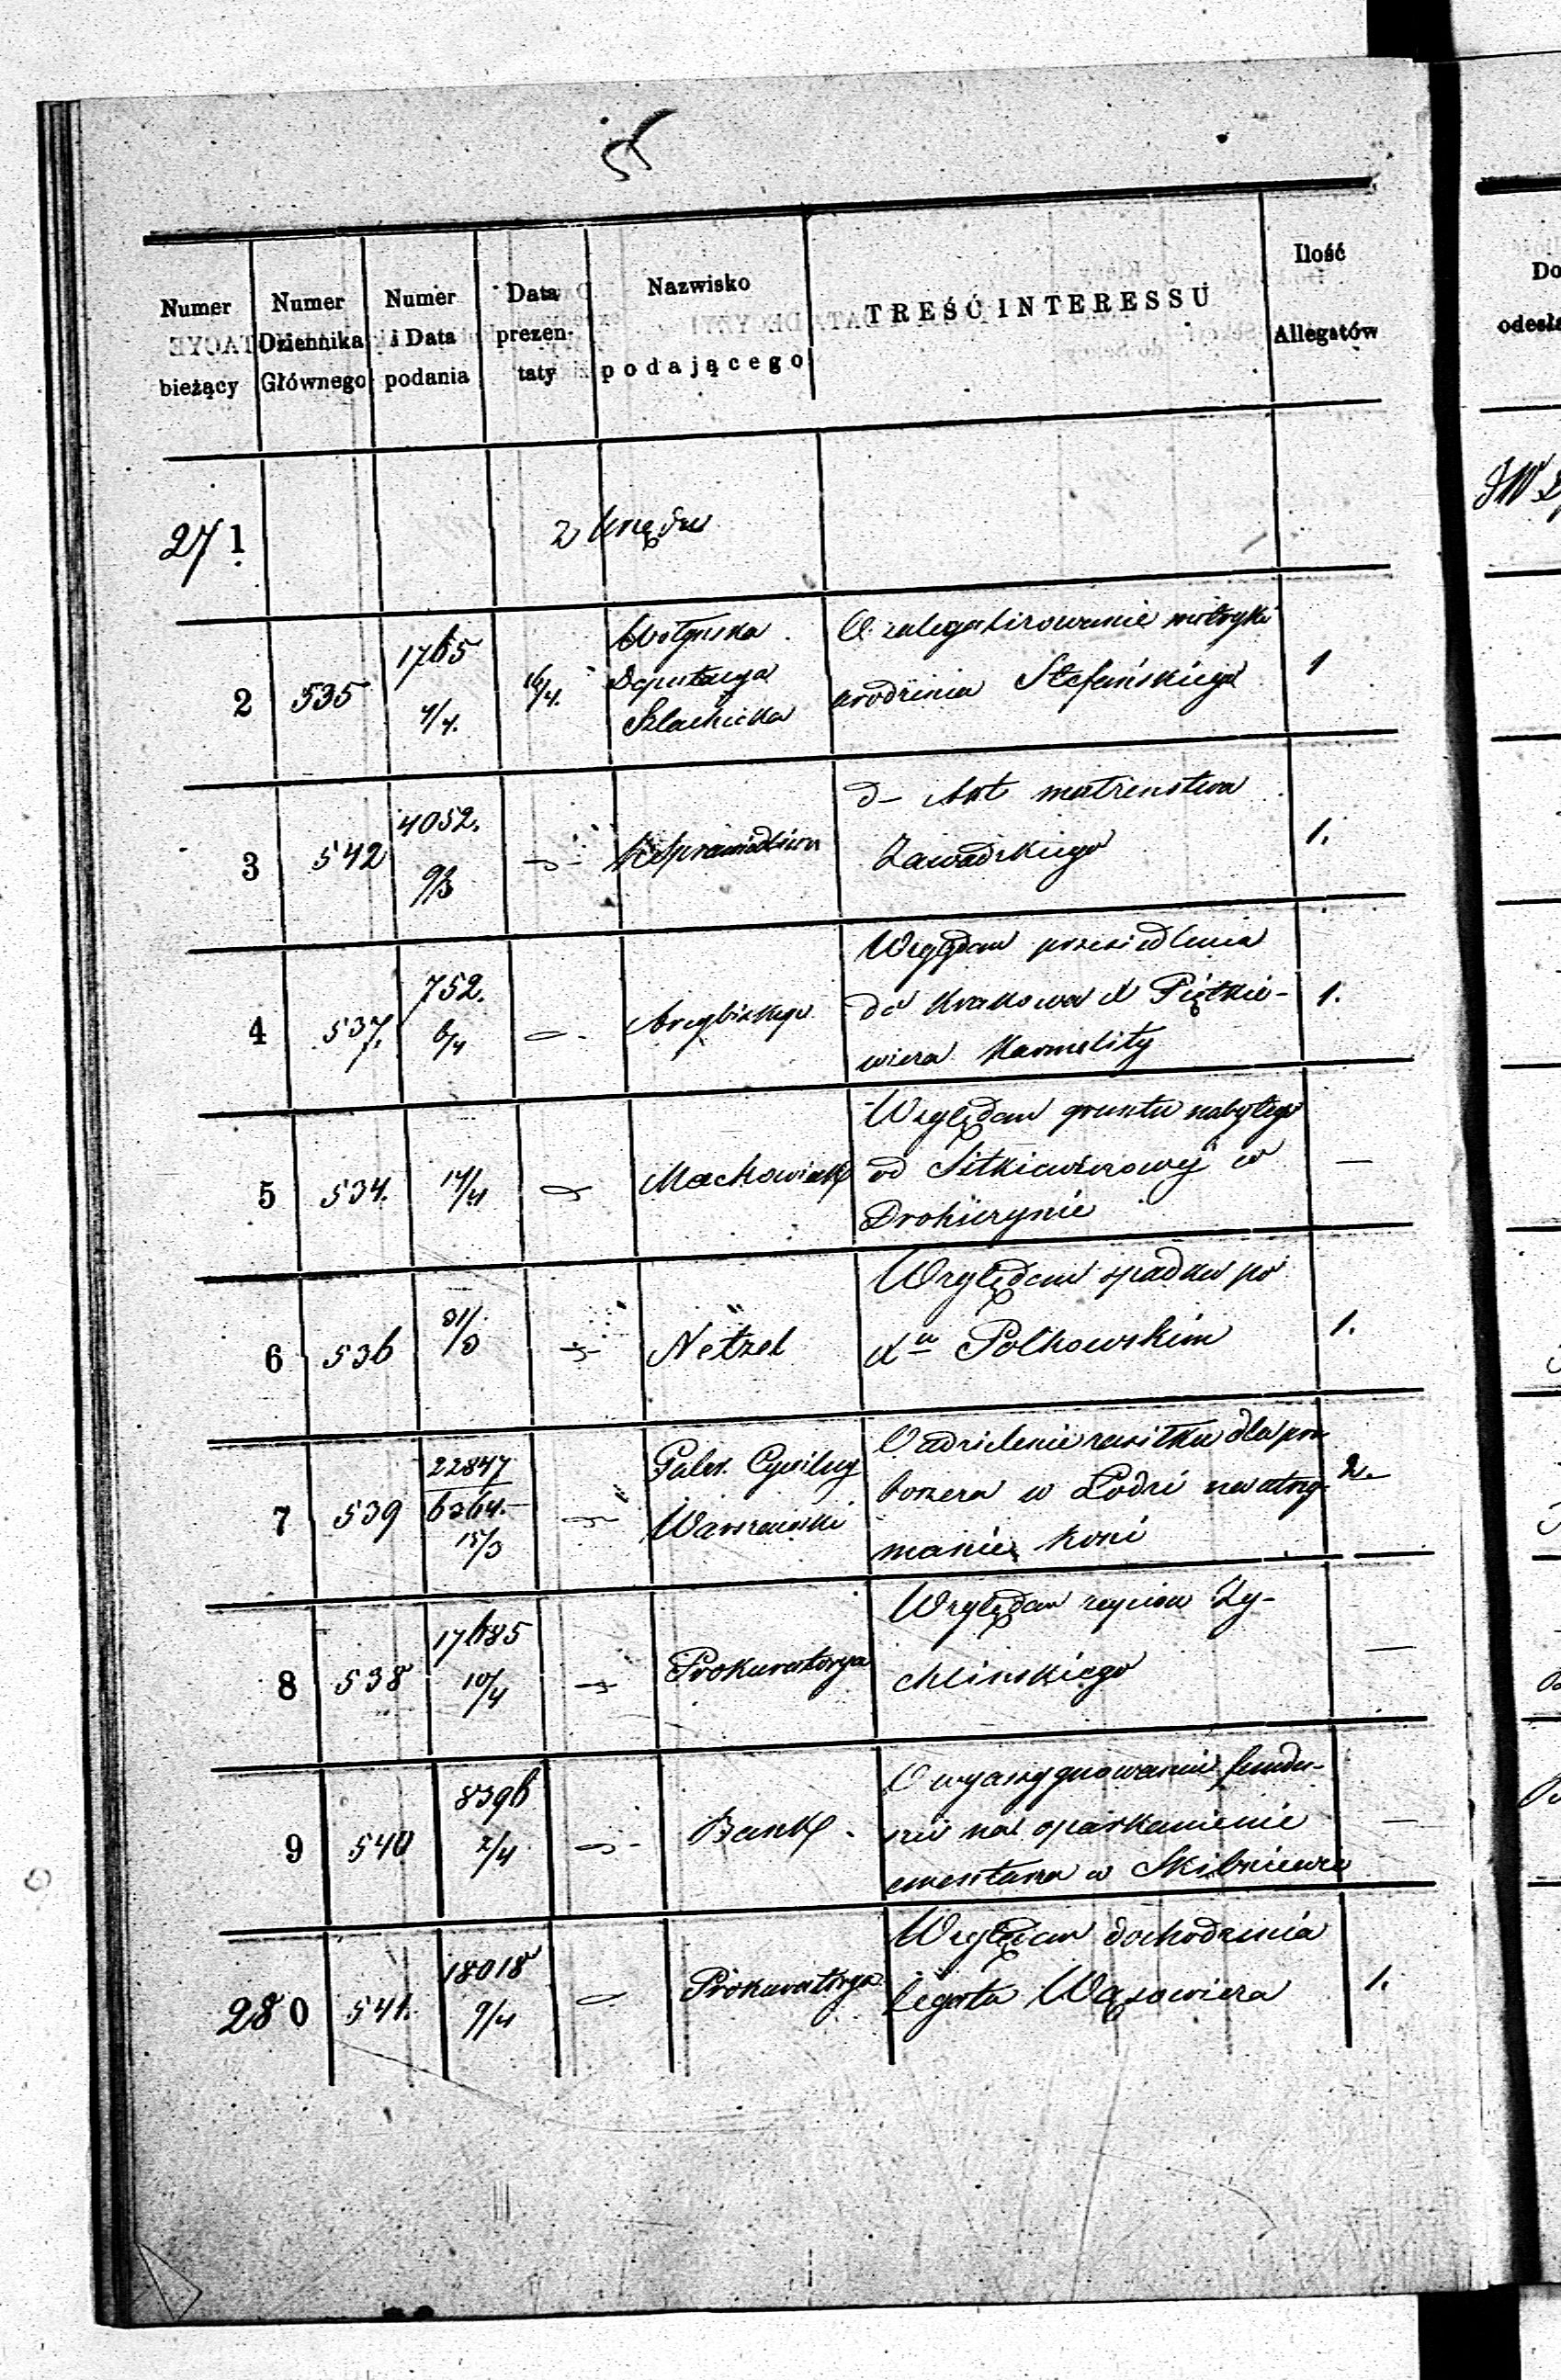 Numer bieżący
Numer Dziennika Głównego
Numer i Data podania
Data prezentaty
Nazwisko podającego
TREŚĆ INTERESSU
Ilość Allegatów
271
z Urzędu
2 535 1765 4/4. 16/4. Wołyńska Deputacya Szlachecka
O zalegalizowanie metryki
urodzenia Stefańskiego
1
3 542 4052. 9/3 K Sprawiedliwoś
d– Akt małżeństwa
Zawadzkiego
1.
4 537. 752. 6/4 Arcybiskup
Względem przesiedlenia
do Krakowa X Piętkie-
wicza Karmelity
1.
5 534. 14/4 Maćkowiak
Względem gruntu nabytego
od Sitkiewiczowej w
Drohiczynie
—
6 536 31/3 Netzel
Względem spadku po
Xu Polkowskim
1.
7 539 22847 6364.– 15/3 Gaber. Cywilny Warszawski
O udzielenie zasiłku dla pro-
boszcza w Łodzi na utrzy-
manie koni
2.
8 538 17685 10/4 Prokuratorya
Względem zapisu Zy-
chlinskiego
—
9 540 8396 2/4 Bank.
O wyassygnowanie fundu-
szu na oparkanienie
cmentarza w Skibniewie
—
280 541. 18018 9/4 Prokuratorya
Względem dochodzenia
legata Wąsowicza
1.